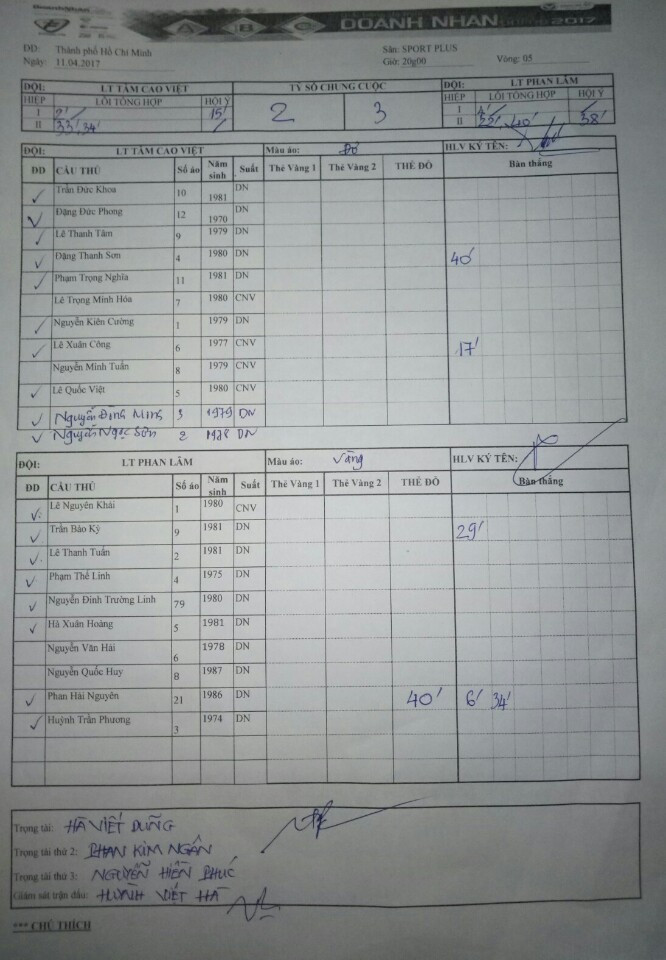 DOANH NHAN 2017
DD: Thành phố Hồ Chí Minh Sân: SPORT PLUS
Ngày: 11.04.2017 Giờ: 20g00 Vòng: 05
ĐỘI: LT TÂM CAO VIỆT TỶ SỐ CHUNG CUỘC ĐỘI: LT PHAN LÂM
HIỆP LỖI TỔNG HỢP HỘI Ý 2 3 HIỆP LỖI TỔNG HỢP HỘI Ý
I 2' 15' I 4'
II 33', 34' II 22', 40' 38'
ĐỘI: LT TÂM CAO VIỆT Màu áo: Đỏ HLV KÝ TÊN:
DD CẦU THỦ Số áo Năm sinh Suất Thẻ Vàng 1 Thẻ Vàng 2 THẺ ĐỎ Bàn thắng
Trần Đức Khoa 10 1981 DN
Đặng Đức Phong 12 1970 DN
Lê Thanh Tâm 9 1979 DN
Đặng Thanh Sơn 4 1980 DN 40'
Phạm Trọng Nghĩa 11 1981 DN
Lê Trọng Minh Hóa 7 1980 CNV
Nguyễn Kiên Cường 1 1979 DN
Lê Xuân Công 6 1977 CNV 17'
Nguyễn Minh Tuấn 8 1979 CNV
Lê Quốc Việt 5 1980 CNV
Nguyễn Đình Minh 3 1979 DN
Nguyễn Ngọc Sơn 2 DN
ĐỘI: LT PHAN LÂM Màu áo: Vàng HLV KÝ TÊN:
DD CẦU THỦ Số áo Năm sinh Suất Thẻ Vàng 1 Thẻ Vàng 2 THẺ ĐỎ Bàn thắng
Lê Nguyên Khải 1 1980 CNV
Trần Bảo Ký 9 1981 DN 29'
Lê Thanh Tuấn 2 1981 DN
Phạm Thế Linh 4 1975 DN
Nguyễn Đình Trường Linh 79 1980 DN
Hà Xuân Hoàng 5 1981 DN
Nguyễn Văn Hải 6 1978 DN
Nguyễn Quốc Huy 8 1987 DN
Phan Hải Nguyên 21 1986 DN 40' 6' 34'
Huỳnh Trần Phương 3 1974 DN
Trọng tài: HÀ VIẾT DŨNG
Trọng tài thứ 2: PHAN KIM NGÂN
Trọng tài thứ 3: NGUYỄN HIỀN PHÚC
Giám sát trận đấu: HUỲNH VIẾT HÀ
*** CHÚ THÍCH